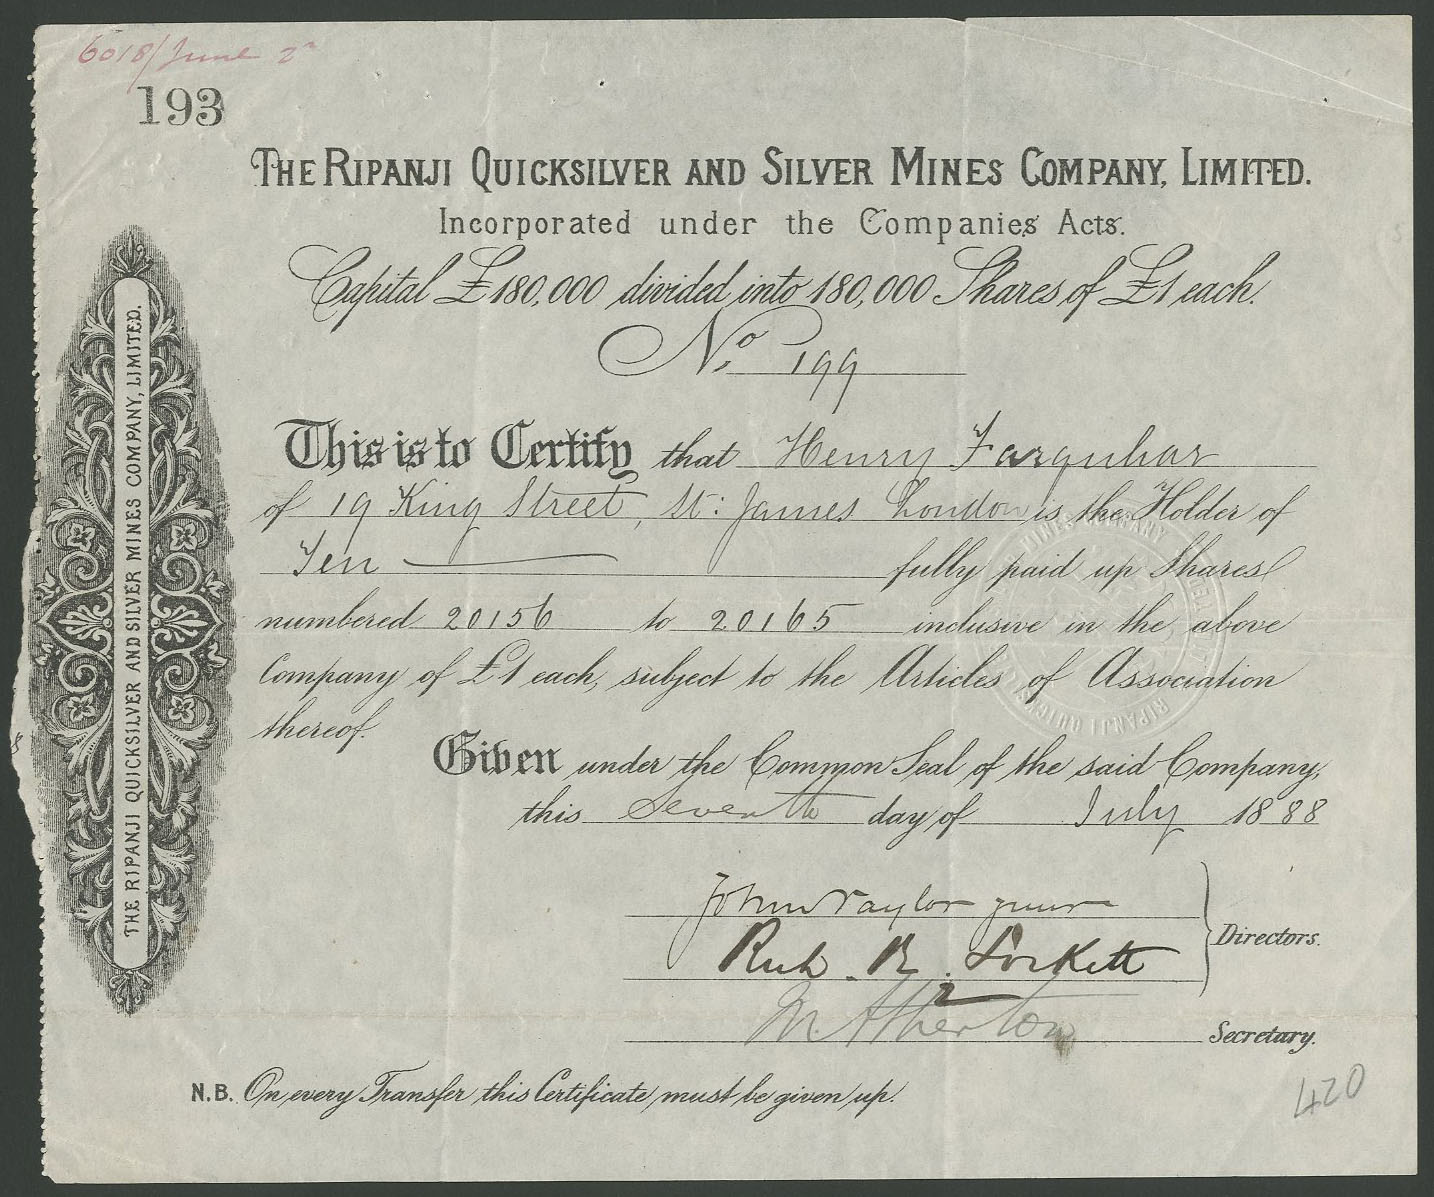 6018/June 2
193
THE RIPANJI QUICKSILVER AND SILVER MINES COMPANY, LIMITED.
Incorporated under the Companies Acts.
Capital £180,000 divided into 180,000 Shares of £1 each.
No. 199
This is to Certify that Henry Farquhar
of 19 King Street, St: James London is the Holder of
Ten fully paid up Shares
numbered 20156 to 20165 inclusive in the above
Company of £1 each, subject to the Articles of Association
thereof.
Given under the Common Seal of the said Company,
this Seventh day of July 1888
John Taylor junr
Rich. R. Lockett
Directors.
M Atherton
Secretary.
N.B. On every Transfer this Certificate must be given up.
420
THE RIPANJI QUICKSILVER AND SILVER MINES COMPANY, LIMITED.